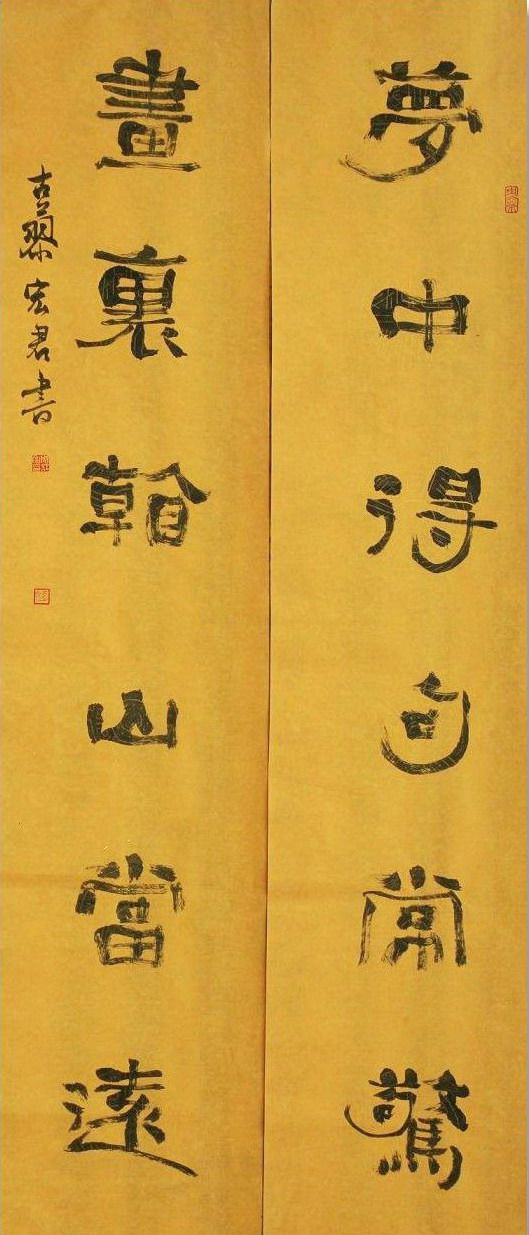 夢中得句常驚
畫裏看山當遠
古宏君書